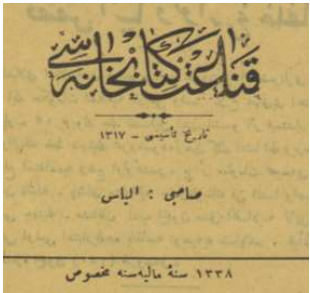 قناعت كتابخانه سی
تاريخ تأسيسی - ١٣١٧
صاحبی : الياس
١٣٣٨ سنۀ ماليه سنه مخصوص